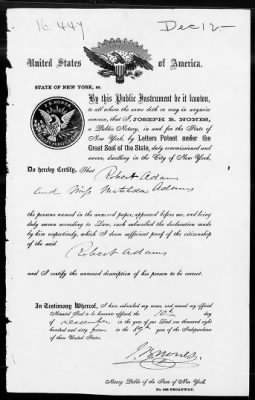 16.447 Dec 12
United States of America.
STATE OF NEW YORK, ss.
By this Public Instrument be it known,
to all whom the same doth or may in anywise
concern, that I, JOSEPH B. NONES,
a Public Notary, in and for the State of
New York, by Letters Patent under the
Great Seal of the State, duly commissioned and
sworn, dwelling in the City of New York,
Do hereby Certify, That Robert Adams
and Miss Matilda Adams
the persons named in the annexed paper, appeared before me, and being
duly sworn according to Law, each subscribed the declaration made
by him respectively, which I deem sufficient proof of the citizenship
of the said
Robert Adams
and I certify the annexed description of his person to be correct.
In Testimony Whereof, I have subscribed my name, and caused my official
Notarial Seal to be hereunto affixed the 10th
day of December in the year of our Lord one thousand eight
hundred and sixty four in the 89th year of the Independence
of these United States.
J. B. Nones
Notary Public of the State of New York.
BROADWAY.